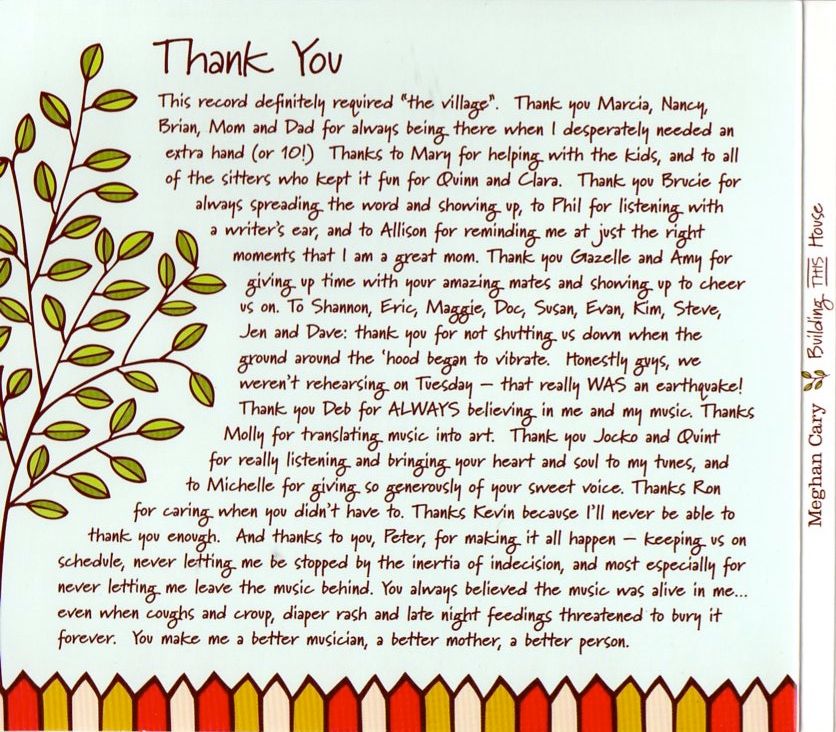 Thank You
This record definitely required "the village". Thank you Marcia, Nancy,
Brian, Mom and Dad for always being there when I desperately needed an
extra hand (or 10!) Thanks to Mary for helping with the kids, and to all
of the sitters who kept it fun for Quinn and Clara. Thank you Brucie for
always spreading the word and showing up, to Phil for listening with
a writer's ear, and to Allison for reminding me at just the right
moments that I am a great mom. Thank you Gazelle and Amy for
giving up time with your amazing mates and showing up to cheer
us on. To Shannon, Eric, Maggie, Doc, Susan, Evan, Kim, Steve,
Jen and Dave: thank you for not shutting us down when the
ground around the 'hood began to vibrate. Honestly guys, we
weren't rehearsing on Tuesday – that really WAS an earthquake!
Thank you Deb for ALWAYS believing in me and my music. Thanks
Molly for translating music into art. Thank you Jocko and Quint
for really listening and bringing your heart and soul to my tunes, and
to Michelle for giving so generously of your sweet voice. Thanks Ron
for caring when you didn't have to. Thanks Kevin because I'll never be able to
thank you enough. And thanks to you, Peter, for making it all happen – keeping us on
schedule, never letting me be stopped by the inertia of indecision, and most especially for
never letting me leave the music behind. You always believed the music was alive in me...
even when coughs and croup, diaper rash and late night feedings threatened to bury it
forever. You make me a better musician, a better mother, a better person.
Meghan Cary Building THIS House